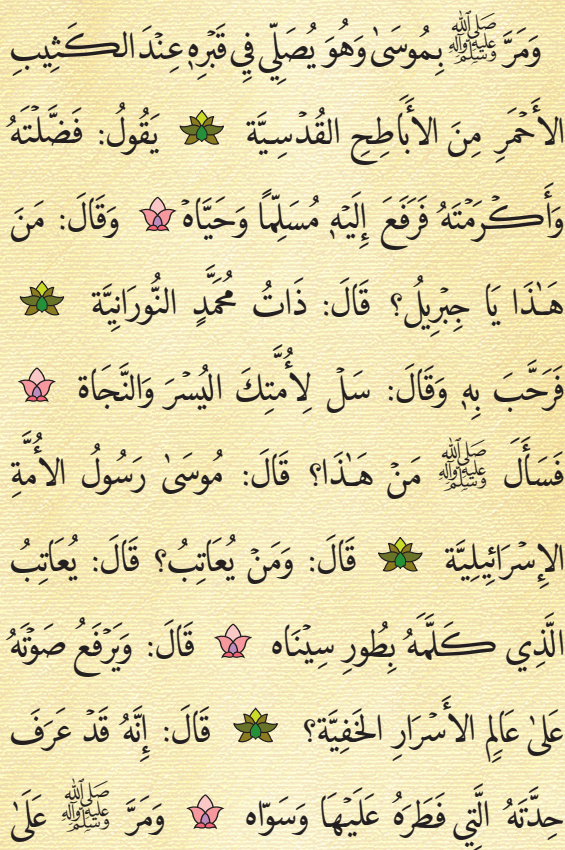 وَمَرَّ ﷺ بِمُوسَىٰ وَهُوَ يُصَلِّي فِي قَبْرِهِ عِنْدَ الكَثِيبِ
الأَحْمَرِ مِنَ الأَبَاطِحِ القُدْسِيَّة يَقُولُ: فَضَّلْتَهُ
وَأَكْرَمْتَهُ فَرَفَعَ إِلَيْهِ مُسَلِّمًا وَحَيَّاهْ وَقَالَ: مَنَ
هَـٰذَا يَا جِبْرِيلُ؟ قَالَ: ذَاتُ مُحَمَّدٍ النُّورَانِيَّة
فَرَحَّبَ بِهِ وَقَالَ: سَلْ لِأُمَّتِكَ اليُسْرَ وَالنَّجَاة
فَسَأَلَ ﷺ مَنْ هَـٰذَا؟ قَالَ: مُوسَىٰ رَسُولُ الأُمَّةِ
الإِسْرَائِيلِيَّة قَالَ: وَمَنْ يُعَاتِبُ؟ قَالَ: يُعَاتِبُ
الَّذِي كَلَّمَهُ بِطُورِ سِيْنَاه قَالَ: وَيَرْفَعُ صَوْتَهُ
عَلىٰ عَالِمِ الأَسْرَارِ الخَفِيَّة؟ قَالَ: إِنَّهُ قَدْ عَرَفَ
حِدَّتَهُ الَّتِي فَطَرَهُ عَلَيْهَا وَسَوَّاه وَمَرَّ ﷺ عَلَىٰ